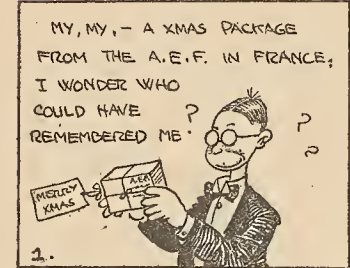 MY, MY, - A XMAS PACKAGE
FROM THE A.E.F. IN FRANCE;
I WONDER WHO
COULD HAVE ?
REMEMBERED ME.
?
?
MERRY
XMAS
A.E.F.
1.